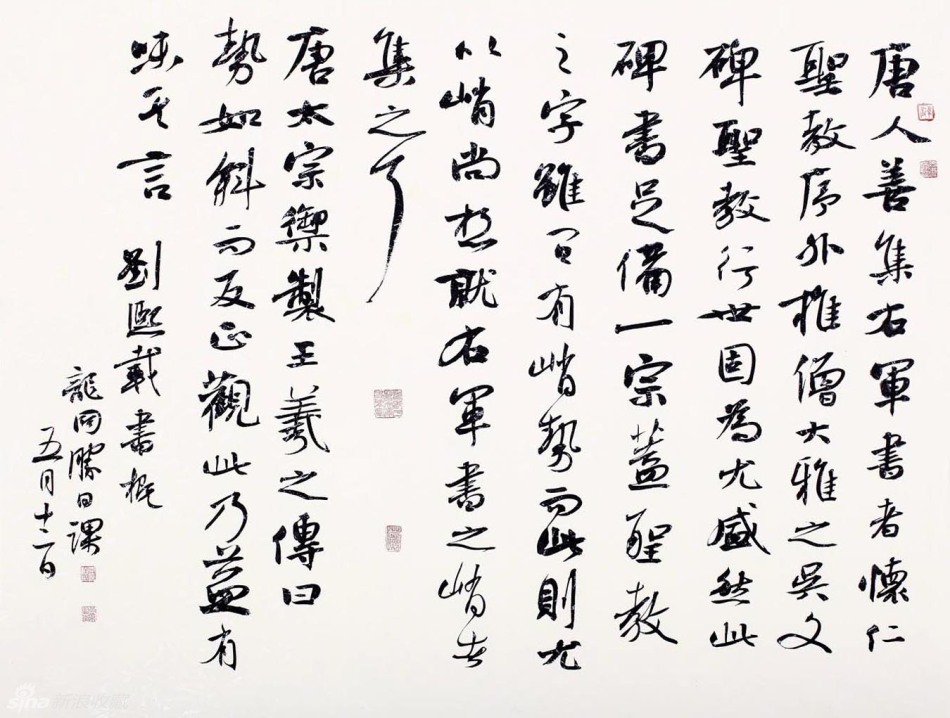 唐人善集右軍書者懷仁
聖教序外推僧大雅之吳文
碑聖教行世固為尤盛然此
碑書足備一宗蓋聖教
之字雖間有峭勢而此則尤
以峭尚想就右軍書之峭者
集之耳
唐太宗禦製王羲之傳曰
勢如斜而反正觀此乃益有
味其言 劉熙載書概
龍開勝日課
五月十二日
sina 新浪收藏